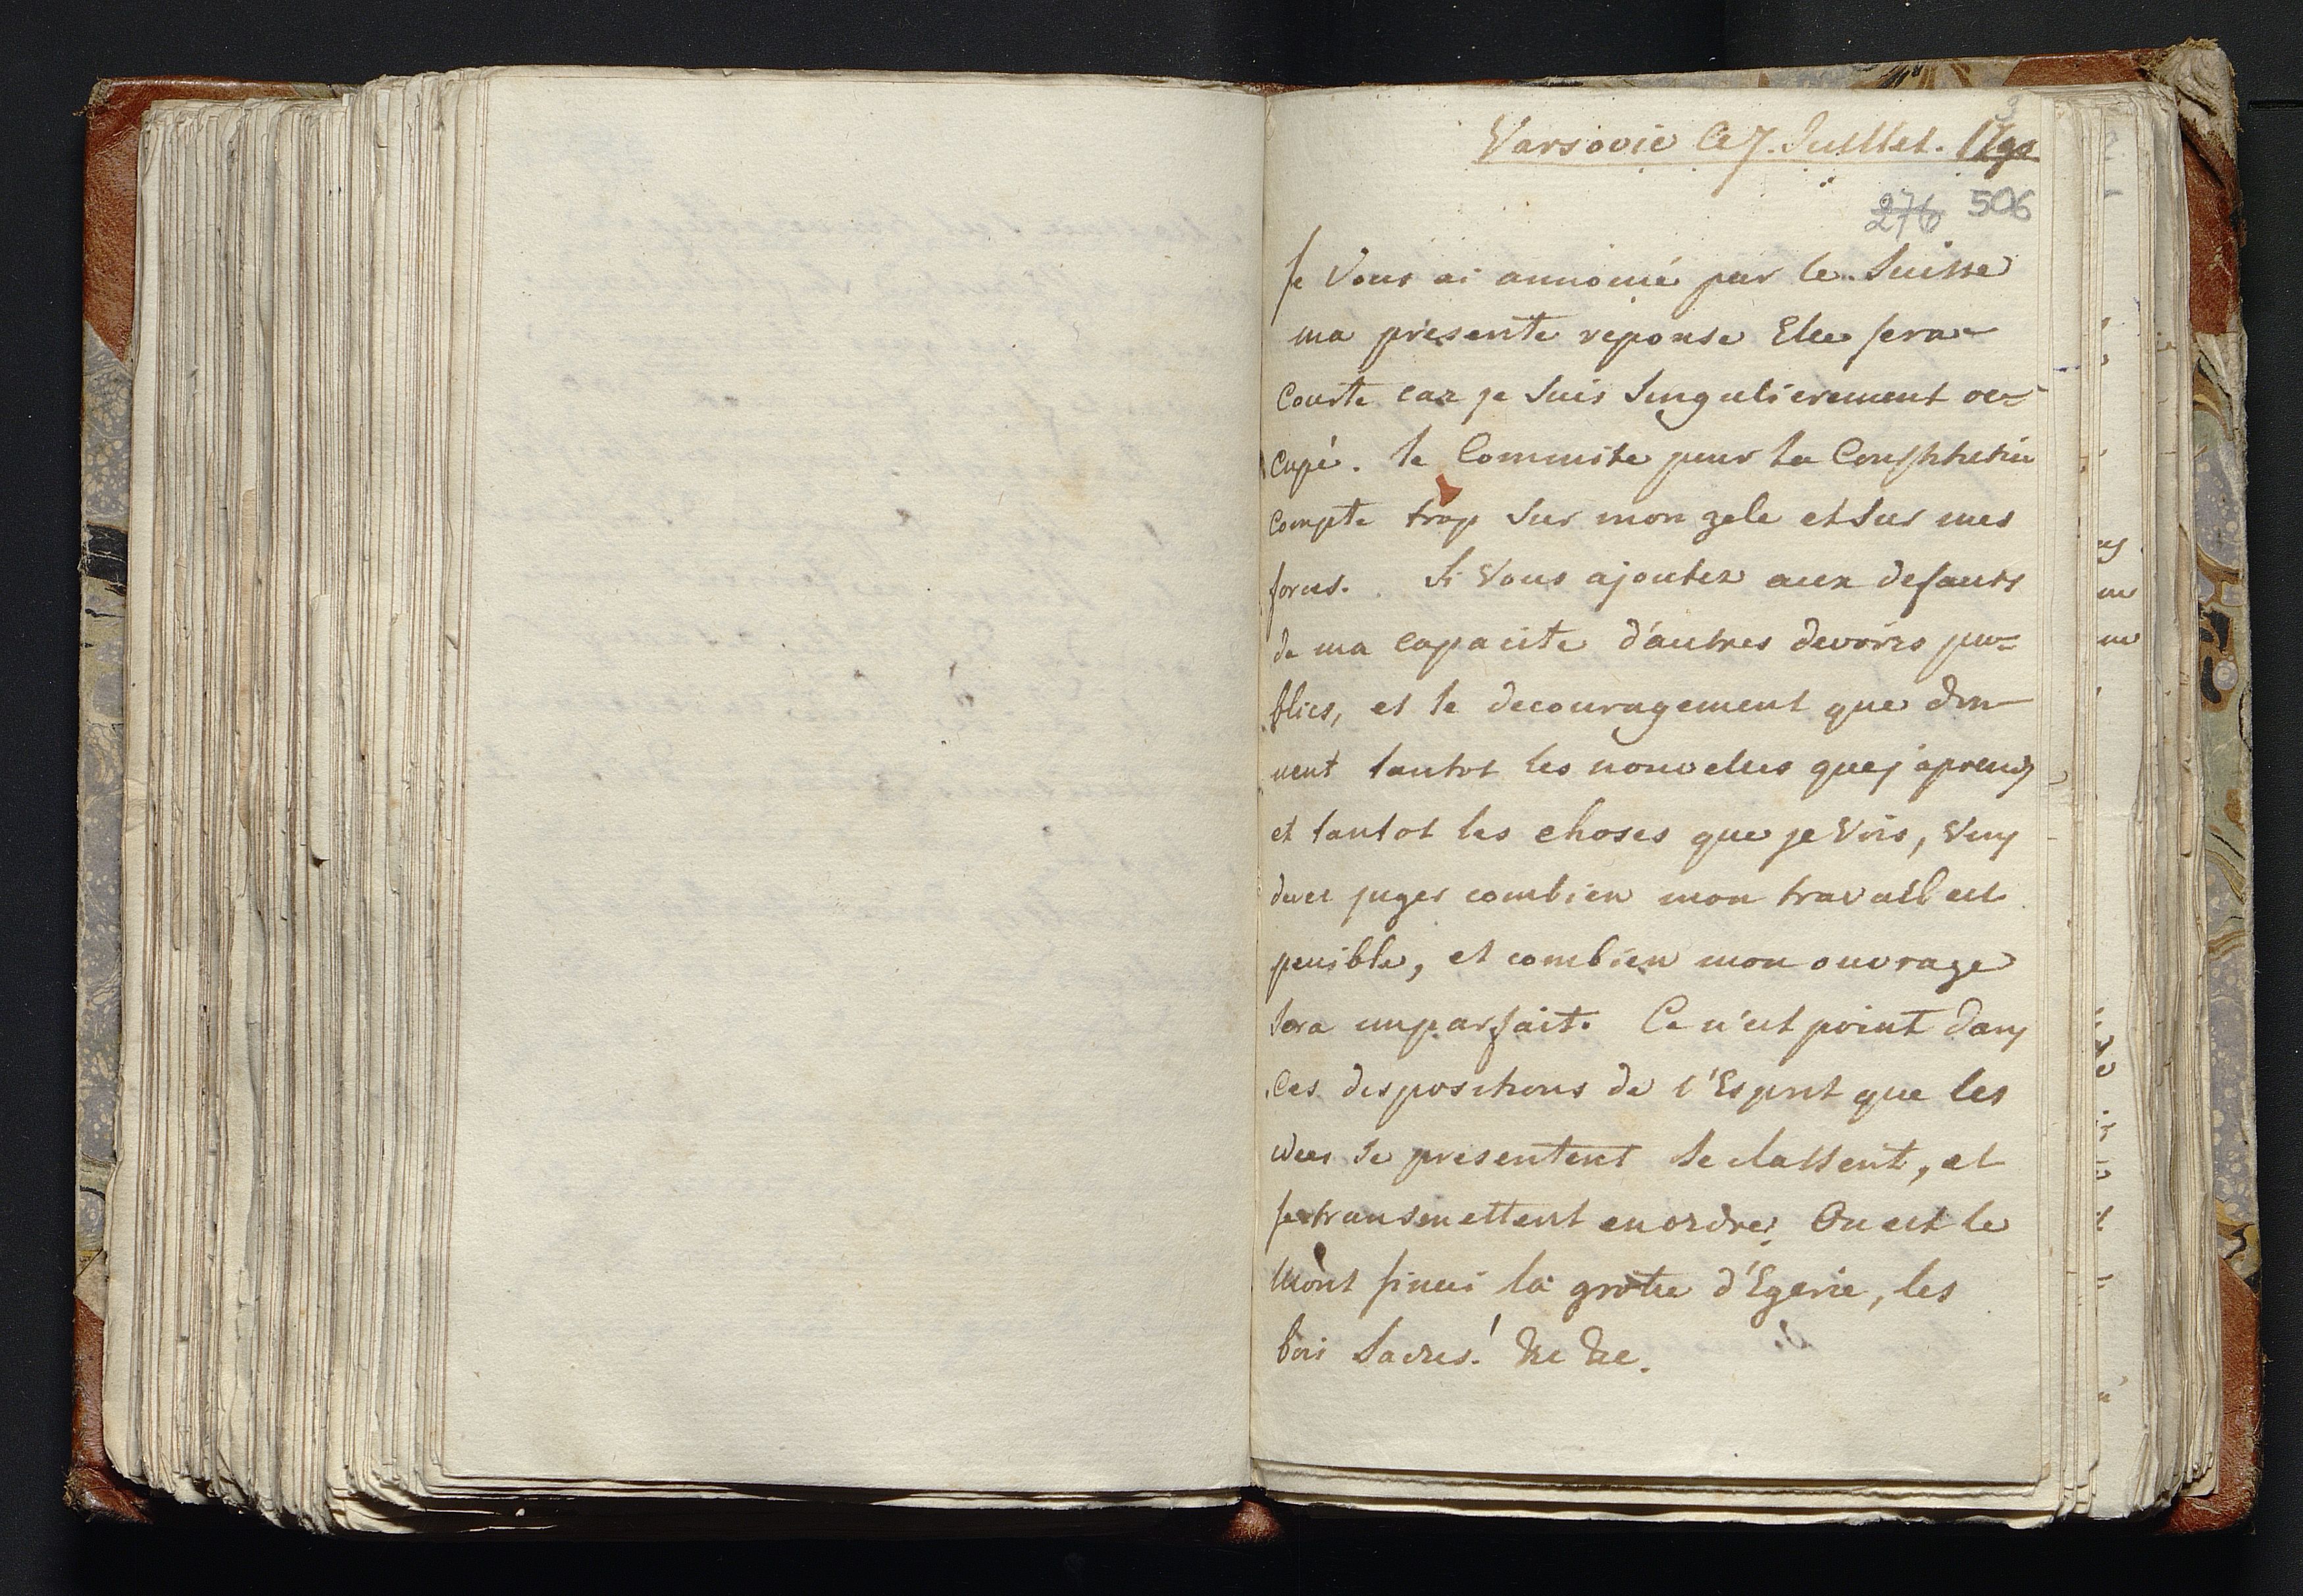 Varsovie Ce 7. Juillet. 1790
3
276 506
Je Vous ai annoncé par le Suisse
ma presente reponse Elle sera
Courte car je suis singulierement oc=
cupé. le Commité pour la Constitution
Compte trop sur mon zele et sur mes
forces. Si Vous ajoutez aux defauts
de ma capacité d'autres devoirs pu=
blics, et le decouragement que don-
nent tantot les nouvelles que j'aprends
et tantot les choses que je Vois, Vous
devez juger combien mon travail est
penible, et combien mon ouvrage
sera imparfait. Ce n'est point dans
Ces dispositions de l'Esprit que les
idees se presentent se classent, et
se transmettent en ordre. Ou est le
Mont Sinai la grotte d'Egerie, les
bois Sacrés! &c &c.